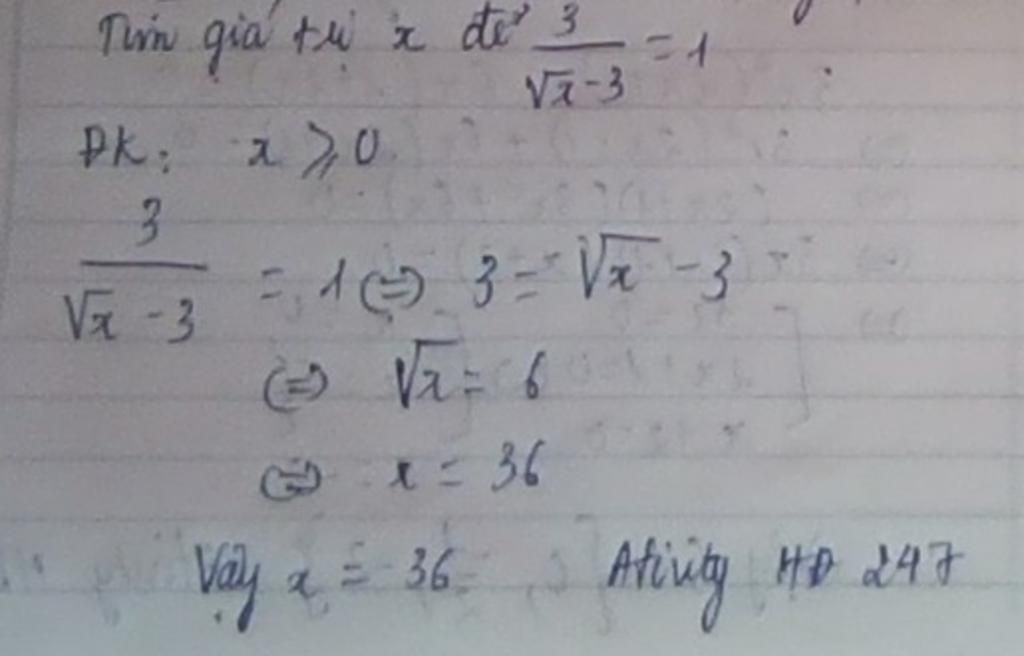 Tìm giá trị x để 3/(√x-3) = 1
ĐK: x ≥ 0
3/(√x - 3) = 1 ⇔ 3 = √x - 3
⇔ √x = 6
⇔ x = 36
Vậy x = 36 Ativity HD 247